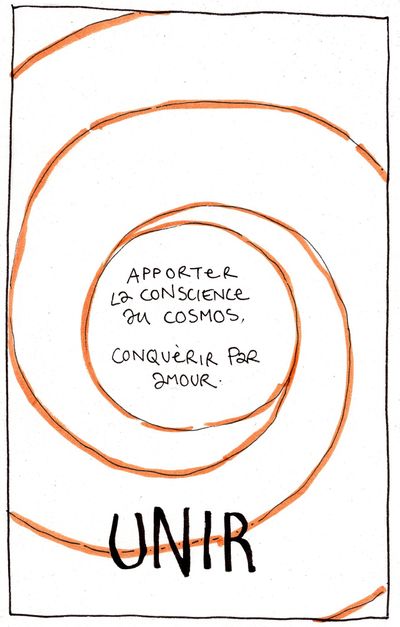 APPORTER
La CONSCIENCE
au COSMOS,
CONQUèRIR Par
amour.
UNIR